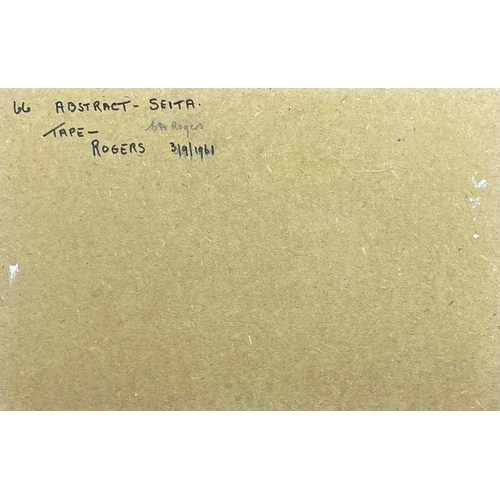 66 ABSTRACT - SEITA.
TAPE - GA Rogers
ROGERS 3/9/1961